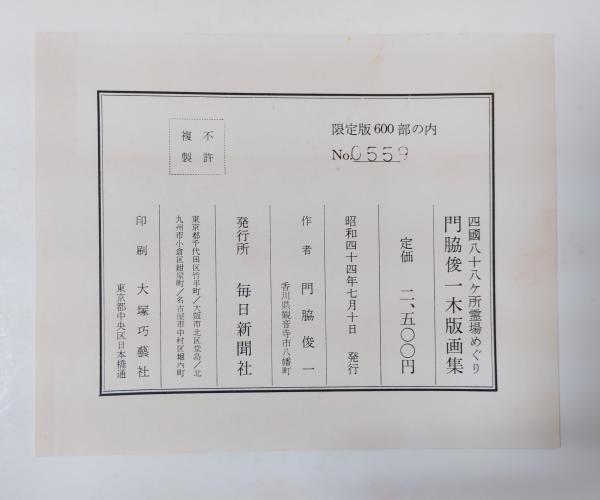 限定版600部の内
No. 0559
不許
複製
四國八十八ケ所霊場めぐり
門脇俊一木版画集
定価 二、五〇〇円
昭和四十四年七月十日 発行
作者 門脇俊一
香川県観音寺市八幡町
発行所 毎日新聞社
東京都千代田区竹平町／大阪市北区堂島／北
九州市小倉区紺屋町／名古屋市中村区堀内町
印刷 大塚巧藝社
東京都中央区日本橋通